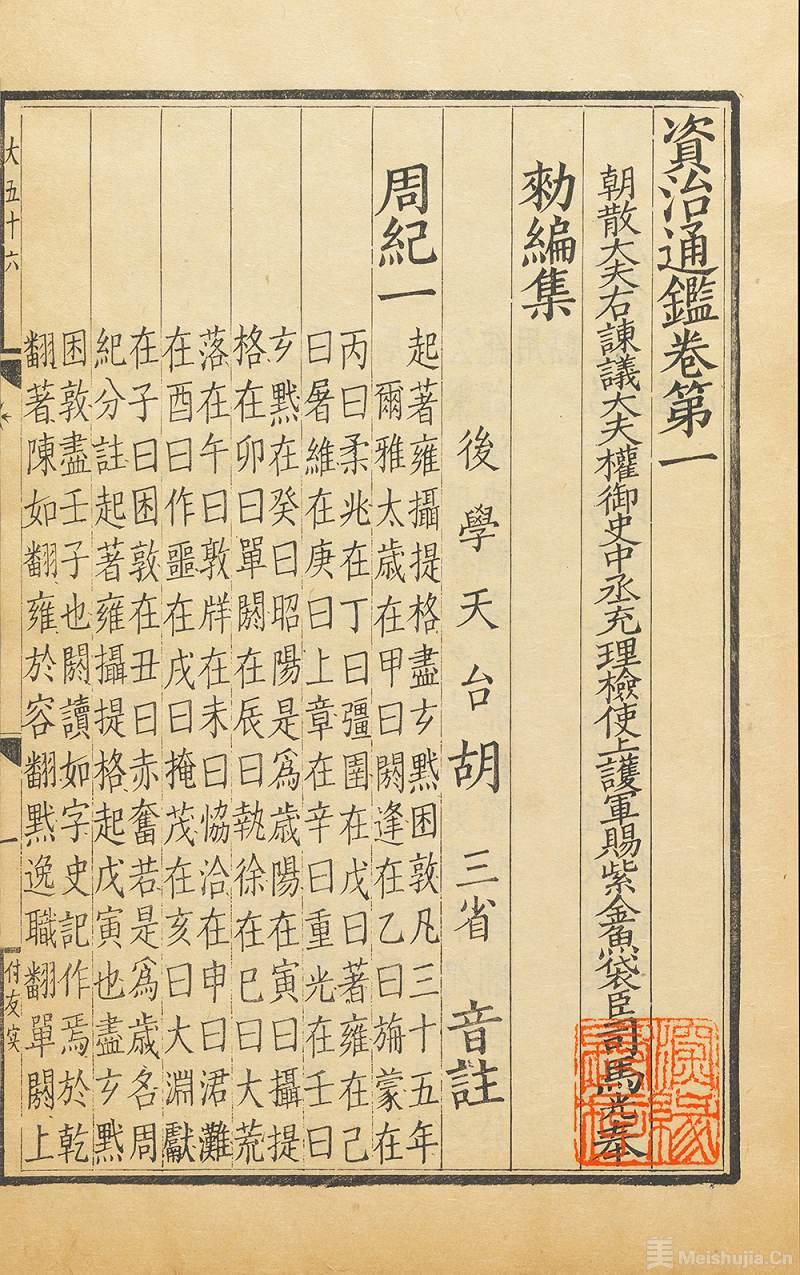 資治通鑑卷第一
朝散大夫右諫議大夫權御史中丞充理檢使上護軍賜紫金魚袋臣司馬光奉
勑編集
後學天台胡三省音註
周紀一
起著雍攝提格盡玄黓困敦凡三十五年
爾雅太歲在甲曰閼逢在乙曰旃蒙在
丙曰柔兆在丁曰彊圉在戊曰著雍在己
曰屠維在庚曰上章在辛曰重光在壬曰
玄黓在癸曰昭陽是爲歲陽在寅曰攝提
格在卯曰單閼在辰曰執徐在巳曰大荒
落在午曰敦牂在未曰協洽在申曰涒灘
在酉曰作噩在戌曰掩茂在亥曰大淵獻
在子曰困敦在丑曰赤奮若是爲歲名周
紀分註起著雍攝提格起戊寅也盡玄黓
困敦盡壬子也閼讀如字史記作焉於乾
翻著陳如翻雍於容翻黓逸職翻單閼上
大五十六
一
付友
美 Meishujia.Cn